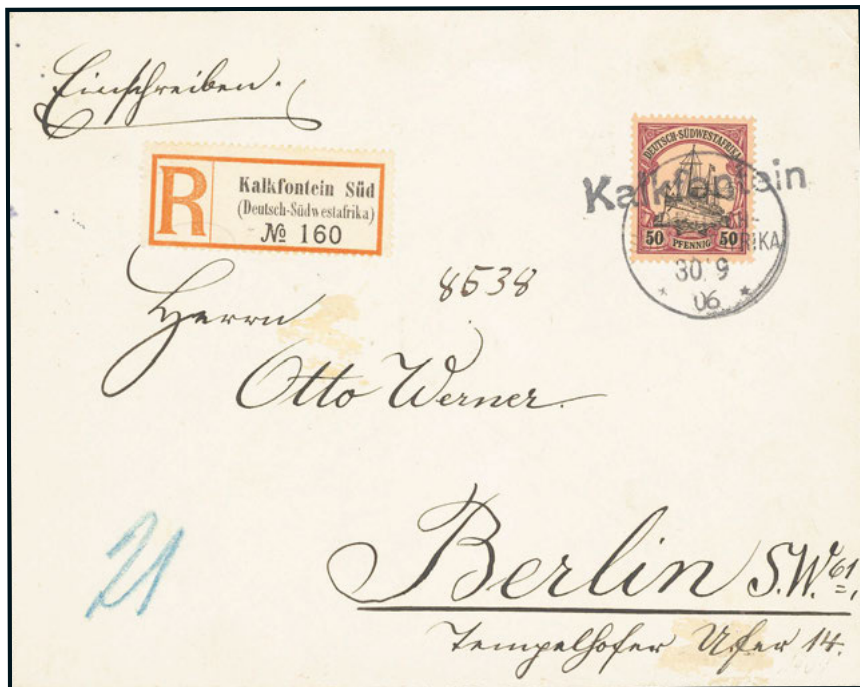 Einschreiben.
R
Kalkfontein Süd
(Deutsch-Südwestafrika)
№ 160
DEUTSCH-SÜDWESTAFRIKA
50 PFENNIG 50
Kalkfontein
RIKA
30.9
06
8538
Herrn
Otto Werner.
21
Berlin S.W. 61,
Tempelhofer Ufer 14.